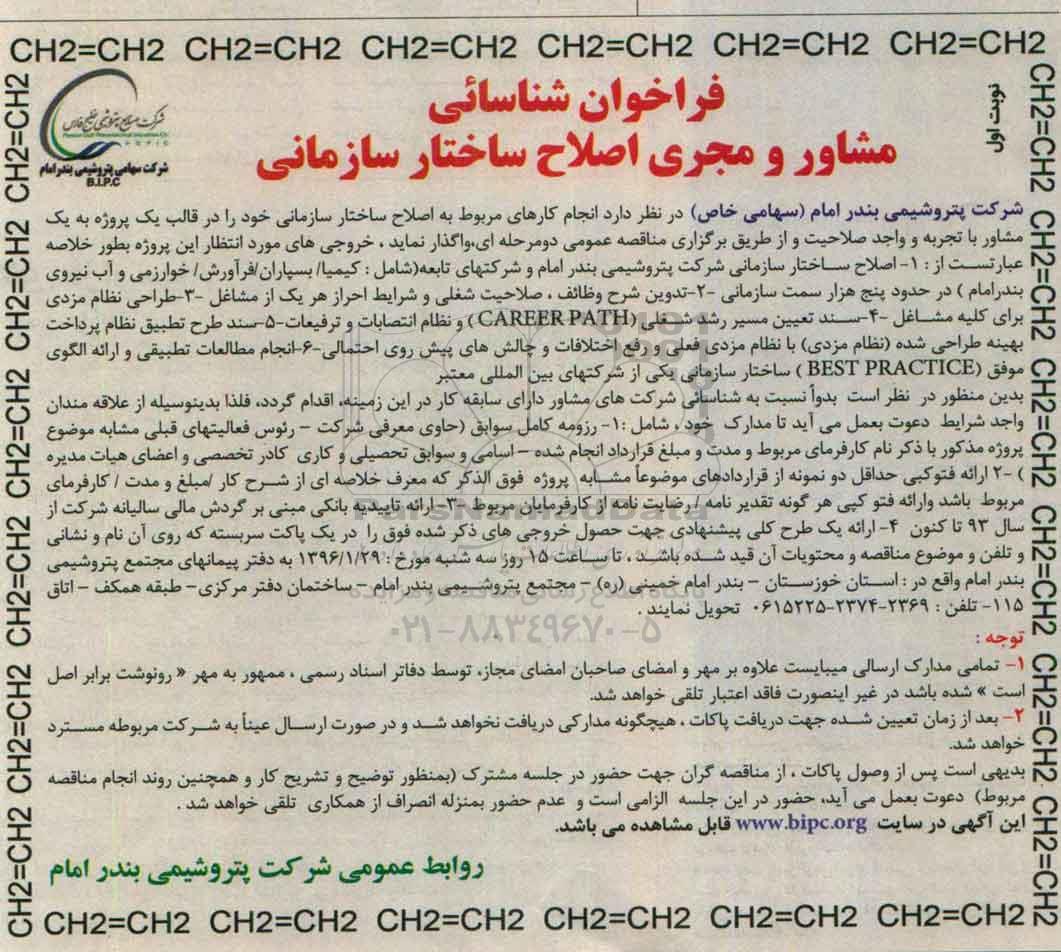 CH2=CH2 CH2=CH2 CH2=CH2 CH2=CH2 CH2=CH2 CH2=CH2
CH2=CH2 CH2=CH2 CH2=CH2 CH2=CH2 CH2=CH2 CH2=CH2
نوبت اول
فراخوان شناسائی
مشاور و مجری اصلاح ساختار سازمانی
شرکت صنایع پتروشیمی خلیج فارس
شرکت سهامی پتروشیمی بندرامام
B.I.P.C
شرکت پتروشیمی بندر امام (سهامی خاص) در نظر دارد انجام کارهای مربوط به اصلاح ساختار سازمانی خود را در قالب یک پروژه به یک
مشاور با تجربه و واجد صلاحیت و از طریق برگزاری مناقصه عمومی دومرحله ای،واگذار نماید ، خروجی های مورد انتظار این پروژه بطور خلاصه
عبارتست از : ۱- اصلاح ساختار سازمانی شرکت پتروشیمی بندر امام و شرکتهای تابعه(شامل : کیمیا/ بسپاران/فرآورش/ خوارزمی و آب نیروی
بندرامام ) در حدود پنج هزار سمت سازمانی -۲-تدوین شرح وظائف ، صلاحیت شغلی و شرایط احراز هر یک از مشاغل -۳-طراحی نظام مزدی
برای کلیه مشاغل -۴-سند تعیین مسیر رشد شغلی (CAREER PATH ) و نظام انتصابات و ترفیعات-۵-سند طرح تطبیق نظام پرداخت
بهینه طراحی شده (نظام مزدی) با نظام مزدی فعلی و رفع اختلافات و چالش های پیش روی احتمالی-۶-انجام مطالعات تطبیقی و ارائه الگوی
موفق (BEST PRACTICE ) ساختار سازمانی یکی از شرکتهای بین المللی معتبر
بدین منظور در نظر است بدواً نسبت به شناسائی شرکت های مشاور دارای سابقه کار در این زمینه، اقدام گردد، فلذا بدینوسیله از علاقه مندان
واجد شرایط دعوت بعمل می آید تا مدارک خود ، شامل :۱- رزومه کامل سوابق (حاوی معرفی شرکت – رئوس فعالیتهای قبلی مشابه موضوع
پروژه مذکور با ذکر نام کارفرمای مربوط و مدت و مبلغ قرارداد انجام شده – اسامی و سوابق تحصیلی و کاری کادر تخصصی و اعضای هیات مدیره
) -۲ ارائه فتوکپی حداقل دو نمونه از قراردادهای موضوعاً مشابه پروژه فوق الذکر که معرف خلاصه ای از شرح کار /مبلغ و مدت / کارفرمای
مربوط باشد وارائه فتو کپی هر گونه تقدیر نامه / رضایت نامه از کارفرمایان مربوط -۳-ارائه تاییدیه بانکی مبنی بر گردش مالی سالیانه شرکت از
سال ۹۳ تا کنون ۴- ارائه یک طرح کلی پیشنهادی جهت حصول خروجی های ذکر شده فوق را در یک پاکت سربسته که روی آن نام و نشانی
و تلفن و موضوع مناقصه و محتویات آن قید شده باشد ، تا ساعت ۱۵ روز سه شنبه مورخ : ۱۳۹۶/۱/۲۹ به دفتر پیمانهای مجتمع پتروشیمی
بندر امام واقع در : استان خوزستان – بندر امام خمینی (ره) – مجتمع پتروشیمی بندر امام – ساختمان دفتر مرکزی– طبقه همکف – اتاق
۱۱۵- تلفن : ۲۳۶۹-۲۳۷۴-۰۶۱۵۲۲۵ تحویل نمایند .
ParsNamadData
۰۲۱-۸۸۳۴۹۶۷۰-۵
توجه :
۱- تمامی مدارک ارسالی میبایست علاوه بر مهر و امضای صاحبان امضای مجاز، توسط دفاتر اسناد رسمی ، ممهور به مهر « رونوشت برابر اصل
است » شده باشد در غیر اینصورت فاقد اعتبار تلقی خواهد شد.
۲- بعد از زمان تعیین شده جهت دریافت پاکات ، هیچگونه مدارکی دریافت نخواهد شد و در صورت ارسال عیناً به شرکت مربوطه مسترد
خواهد شد.
بدیهی است پس از وصول پاکات ، از مناقصه گران جهت حضور در جلسه مشترک (بمنظور توضیح و تشریح کار و همچنین روند انجام مناقصه
مربوط) دعوت بعمل می آید، حضور در این جلسه الزامی است و عدم حضور بمنزله انصراف از همکاری تلقی خواهد شد .
این آگهی در سایت www.bipc.org قابل مشاهده می باشد.
روابط عمومی شرکت پتروشیمی بندر امام
CH2=CH2 CH2=CH2 CH2=CH2 CH2=CH2 CH2=CH2 CH2=CH2
CH2=CH2 CH2=CH2 CH2=CH2 CH2=CH2 CH2=CH2 CH2=CH2